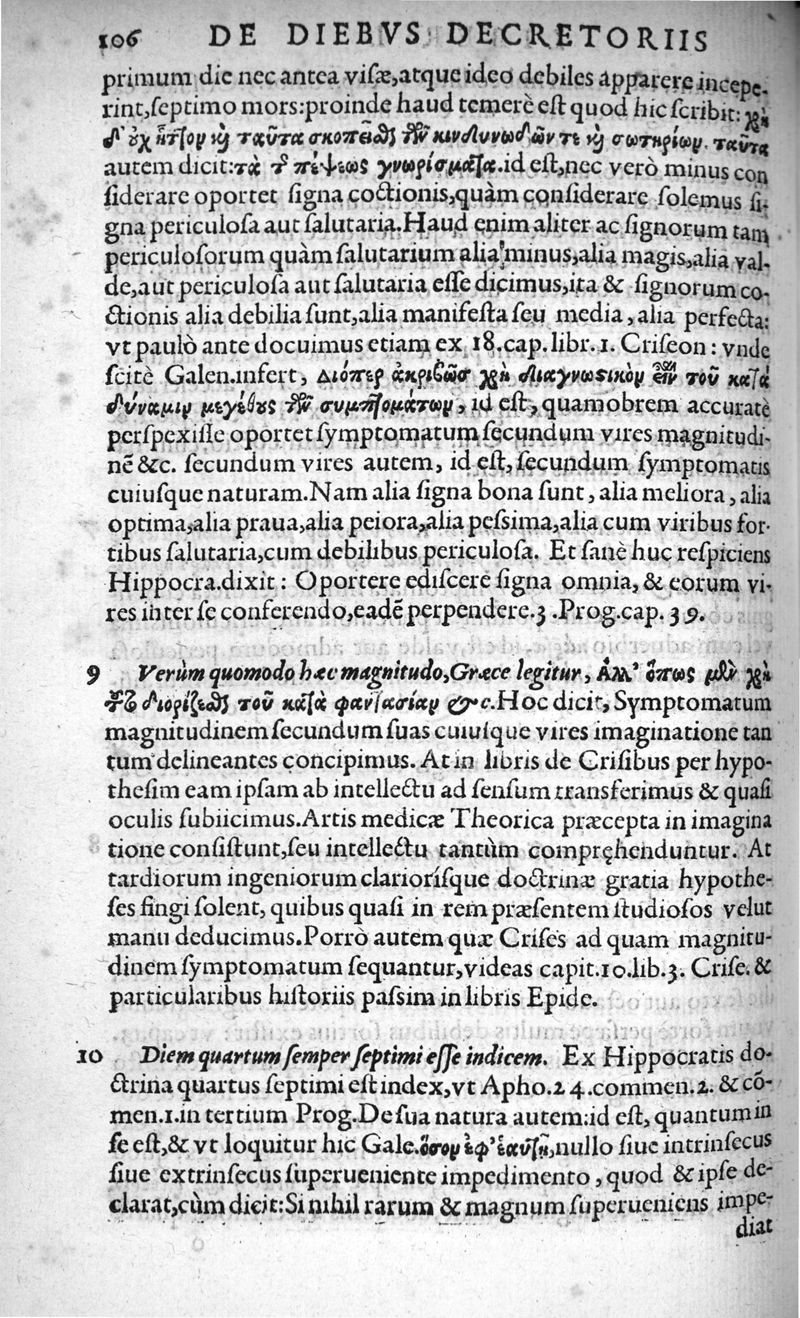 106 DE DIEBVS DECRETORIIS
primum die nec antea visæ,atque ideo debiles apparere incepe-
rint,ſeptimo mors:proinde haud temerè eſt quod hic ſcribit: χρὴ
δ' οὐχ ἧττον καὶ ταῦτα σκοπεῖσθαι τῶν κινδυνωδῶν τε καὶ σωτηρίων. ταῦτα
autem dicit:τὰ τῆς πέψεως γνωρίσματα.id eſt,nec verò minus con
ſiderare oportet ſigna coctionis,quàm conſiderare ſolemus ſi-
gna periculoſa aut ſalutaria.Haud enim aliter ac ſignorum tam
periculoſorum quàm ſalutarium alia minus,alia magis,alia val-
de,aut periculoſa aut ſalutaria eſſe dicimus,ita & ſignorum co-
ctionis alia debilia ſunt,alia manifeſta ſeu media, alia perfecta:
vt paulò ante docuimus etiam ex 18.cap.libr.1. Criſeon: vnde
ſcitè Galen.infert, Διόπερ ἀκριβῶς χρὴ διαγνωστικὸν εἶναι τοῦ κατὰ
δύναμιν μεγέθους τῶν συμπτομάτων, id eſt, quamobrem accuratè
perſpexiſſe oportet ſymptomatum ſecundum vires magnitudi-
nẽ &c. ſecundum vires autem, id eſt, ſecundum ſymptomatis
cuiuſque naturam.Nam alia ſigna bona ſunt, alia meliora, alia
optima,alia praua,alia peiora,alia peſsima,alia cum viribus for-
tibus ſalutaria,cum debilibus periculoſa. Et ſanè huc reſpiciens
Hippocra.dixit: Oportere ediſcere ſigna omnia, & eorum vi-
res inter ſe conferendo,eadẽ perpendere.3 .Prog.cap. 39.
9 Verùm quomodo hæc magnitudo,Græce legitur, Ἀλλ' ὅπως μὲν χρὴ
τοῦτο διορίζεσθαι τοῦ κατὰ φαντασίαν &c.Hoc dicit, Symptomatum
magnitudinem ſecundum ſuas cuiuſque vires imaginatione tan
tum delineantes concipimus. At in libris de Criſibus per hypo-
theſim eam ipſam ab intellectu ad ſenſum transferimus & quaſi
oculis ſubiicimus.Artis medicæ Theorica præcepta in imagina
tione conſiſtunt,ſeu intellectu tantùm compręhenduntur. At
tardiorum ingeniorum clarioríſque doctrinæ gratia hypothe-
ſes fingi ſolent, quibus quaſi in rem præſentem ſtudioſos velut
manu deducimus.Porrò autem quæ Criſes ad quam magnitu-
dinem ſymptomatum ſequantur,videas capit.10.lib.3. Criſe. &
particularibus hiſtoriis paſsim in libris Epide.
10 Diem quartum ſemper ſeptimi eſſe indicem. Ex Hippocratis do-
ctrina quartus ſeptimi eſt index,vt Apho.24.commen.2. & cõ-
men.1.in tertium Prog.De ſua natura autem:id eſt, quantum in
ſe eſt,& vt loquitur hic Gale.ὅσον ἐφ' ἑαυτῇ,nullo ſiue intrinſecus
ſiue extrinſecus ſuperueniente impedimento, quod & ipſe de-
clarat,cùm dicit:Si nihil rarum & magnum ſuperueniens impe-
diat